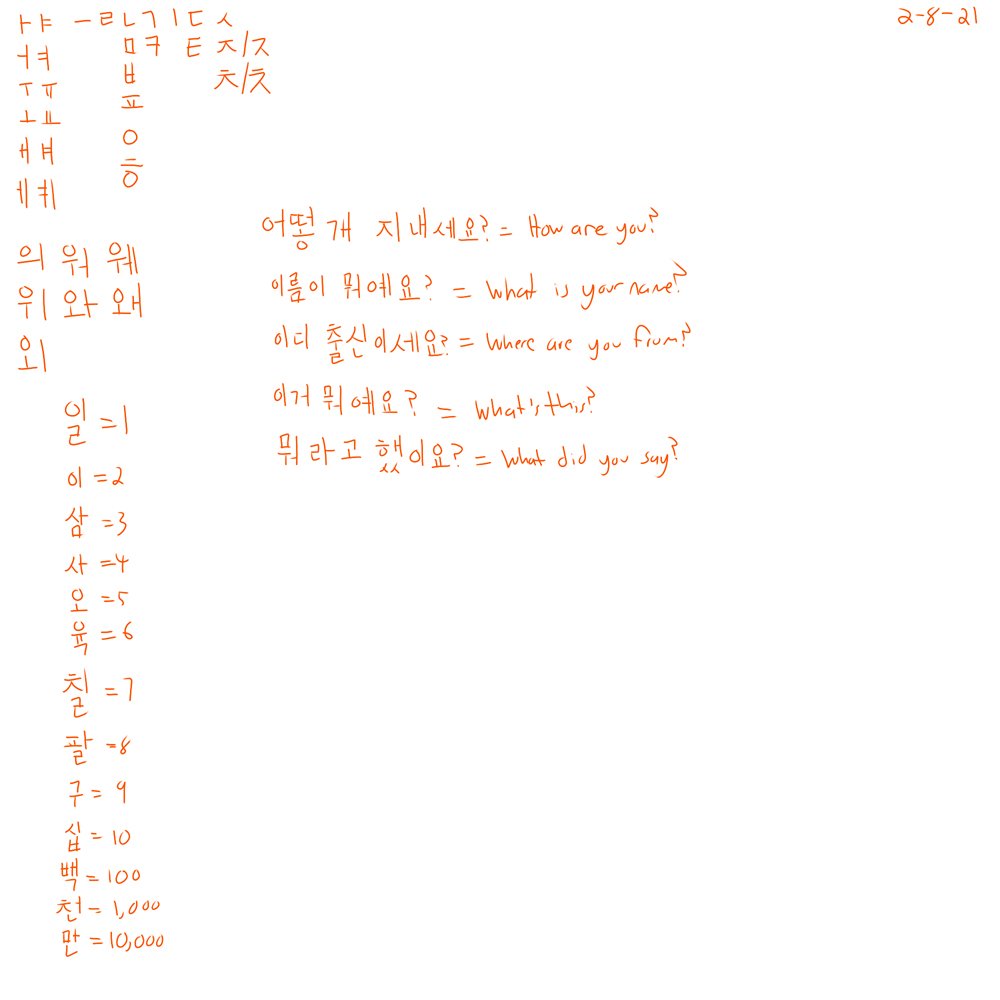 2-8-21
ㅏ ㅑ ㅡ ㄹ ㄴ ㄱ ㅣ ㄷ ㅅ
ㅓ ㅕ ㅁ ㅋ ㅌ ㅈ/ㅈ
ㅜ ㅠ ㅂ ㅊ/ㅊ
ㅗ ㅛ ㅍ
ㅐ ㅒ ㅇ
ㅔ ㅖ ㅎ
의 워 웨
위 와 왜
외
어떻개 지내세요? = How are you?
이름이 뭐예요? = What is your name?
이디 출신이세요? = Where are you from?
이거 뭐예요? = What's this?
뭐라고 했이요? = What did you say?
일 = 1
이 = 2
삼 = 3
사 = 4
오 = 5
육 = 6
칠 = 7
팔 = 8
구 = 9
십 = 10
백 = 100
천 = 1,000
만 = 10,000